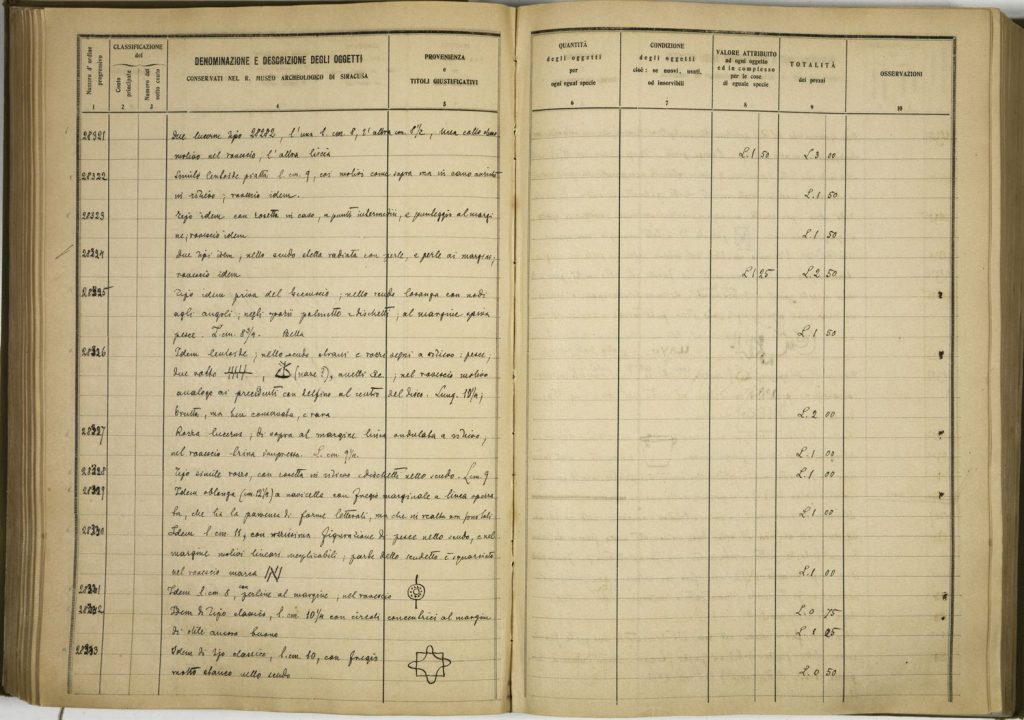 Numero d'ordine progressivo
CLASSIFICAZIONE
del
Conto principale
Numero del sotto conto
DENOMINAZIONE E DESCRIZIONE DEGLI OGGETTI
CONSERVATI NEL R. MUSEO ARCHEOLOGICO DI SIRACUSA
PROVENIENZA
e
TITOLI GIUSTIFICATIVI
QUANTITÀ
degli oggetti
per
ogni egual specie
CONDIZIONE
degli oggetti
cioè: se nuovi, usati,
od inservibili
VALORE ATTRIBUITO
ad ogni oggetto
ed in complesso
per le cose
di eguale specie
TOTALITÀ
dei prezzi
OSSERVAZIONI
1 2 3 4 5 6 7 8 9 10
28321 Due lucerne tipo 28282, l'una l. cm. 8, l'altra cm. 8 1/2, una collo
motivo nel rovescio, l'altra liscia L. 1 50 L. 3 00
28322 Simile lenticolare piatta l. cm. 9, coi motivi come sopra ma in
in rilievo; rovescio idem. L. 1 50
28323 Tipo idem con rosetta in cavo, a punti intermedii, e punteggio al margi
ne; rovescio idem L. 1 50
28324 Due tipi idem; nello scudo stella radiata con perle, e perle ai margine;
rovescio idem L. 1 25 L. 2 50
28325 Tipo idem priva del; nello scudo losanga con nodi
agli angoli; negli spazii palmette e dischetti; al margine spina
pesce. L. cm. 8 3/4. Bella L. 1 50
28326 Idem; nello scudo strani e rozzi segni a rilievo: pesce;
due volte, (nave?), anelli &c; nel rovescio motivo
analogo ai precedenti con delfino al centro del disco. Lung. 10 1/2;
brutta, ma ben conservata, e rara L. 2 00
28327 Rozza lucerna, di sopra al margine linea ondulata a rilievo,
nel rovescio impressa. L. cm. 9 1/2 L. 1 00
28328 Tipo simile rozzo, con rosetta in rilievo e dischetti nello scudo. L. cm. 9 L. 1 00
28329 Idem oblunga (cm. 12 1/2) a navicella con fregio marginale a linea spezza
ta, che ha la parvenza di forme letterali, ma che in realtà non sono tali L. 1 00
28330 Idem l. cm. 11, con rozzissima figurazione di pesce nello scudo, e nel
margine motivi lineari inesplicabili; parte dello scudetto è squarciata
nel rovescio marca L. 1 00
28331 Idem l. cm. 8, con perline al margine; nel rovescio
28332 Idem di tipo classico, l. cm. 10 1/2 con circoli concentrici al margine L. 0 75
di stile ancora buono L. 1 25
28333 Idem di tipo classico, l. cm. 10, con fregio
molto stanco nello scudo L. 0 50